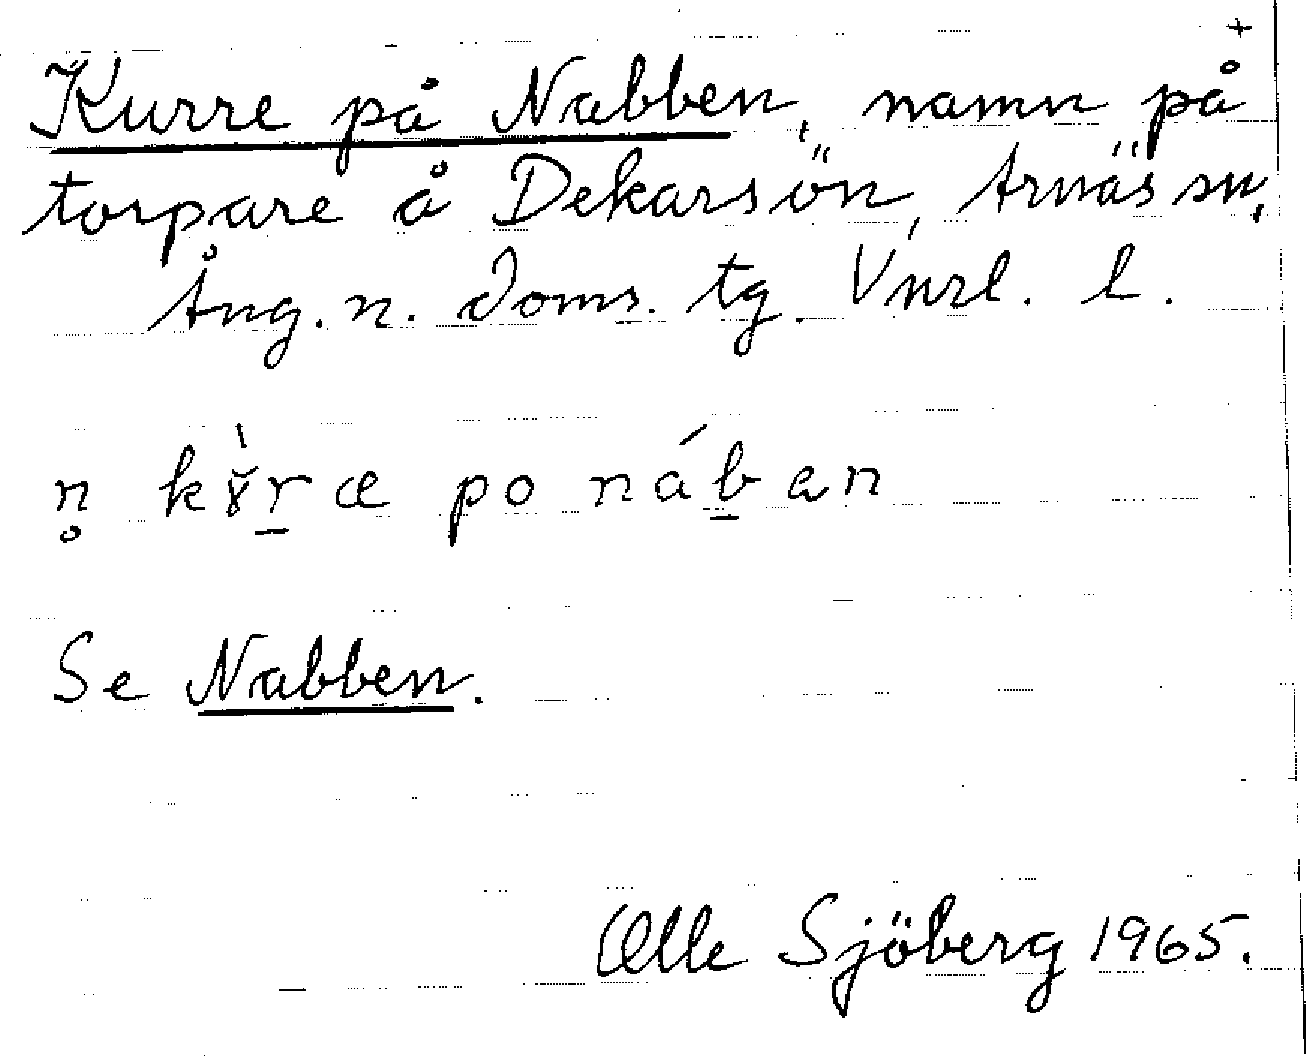 Kurre på Nabben, namn på
torpare å Dekarsön, Arnäs sn,
Ång. n. doms. tg. Vnrl. l.
po nában
Se Nabben.
Olle Sjöberg 1965.